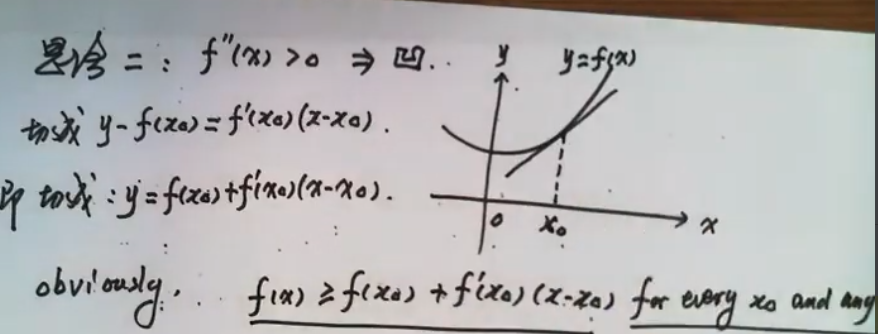 思路二: f''(x) > 0 ⇒ 凹..
切线 y-f(x₀)=f'(x₀)(x-x₀).
即 切线: y=f(x₀)+f'(x₀)(x-x₀).
y
y=f(x)
0
x₀
x
obviously, .. f(x) ≥ f(x₀) + f'(x₀)(x-x₀) for every x₀ and any